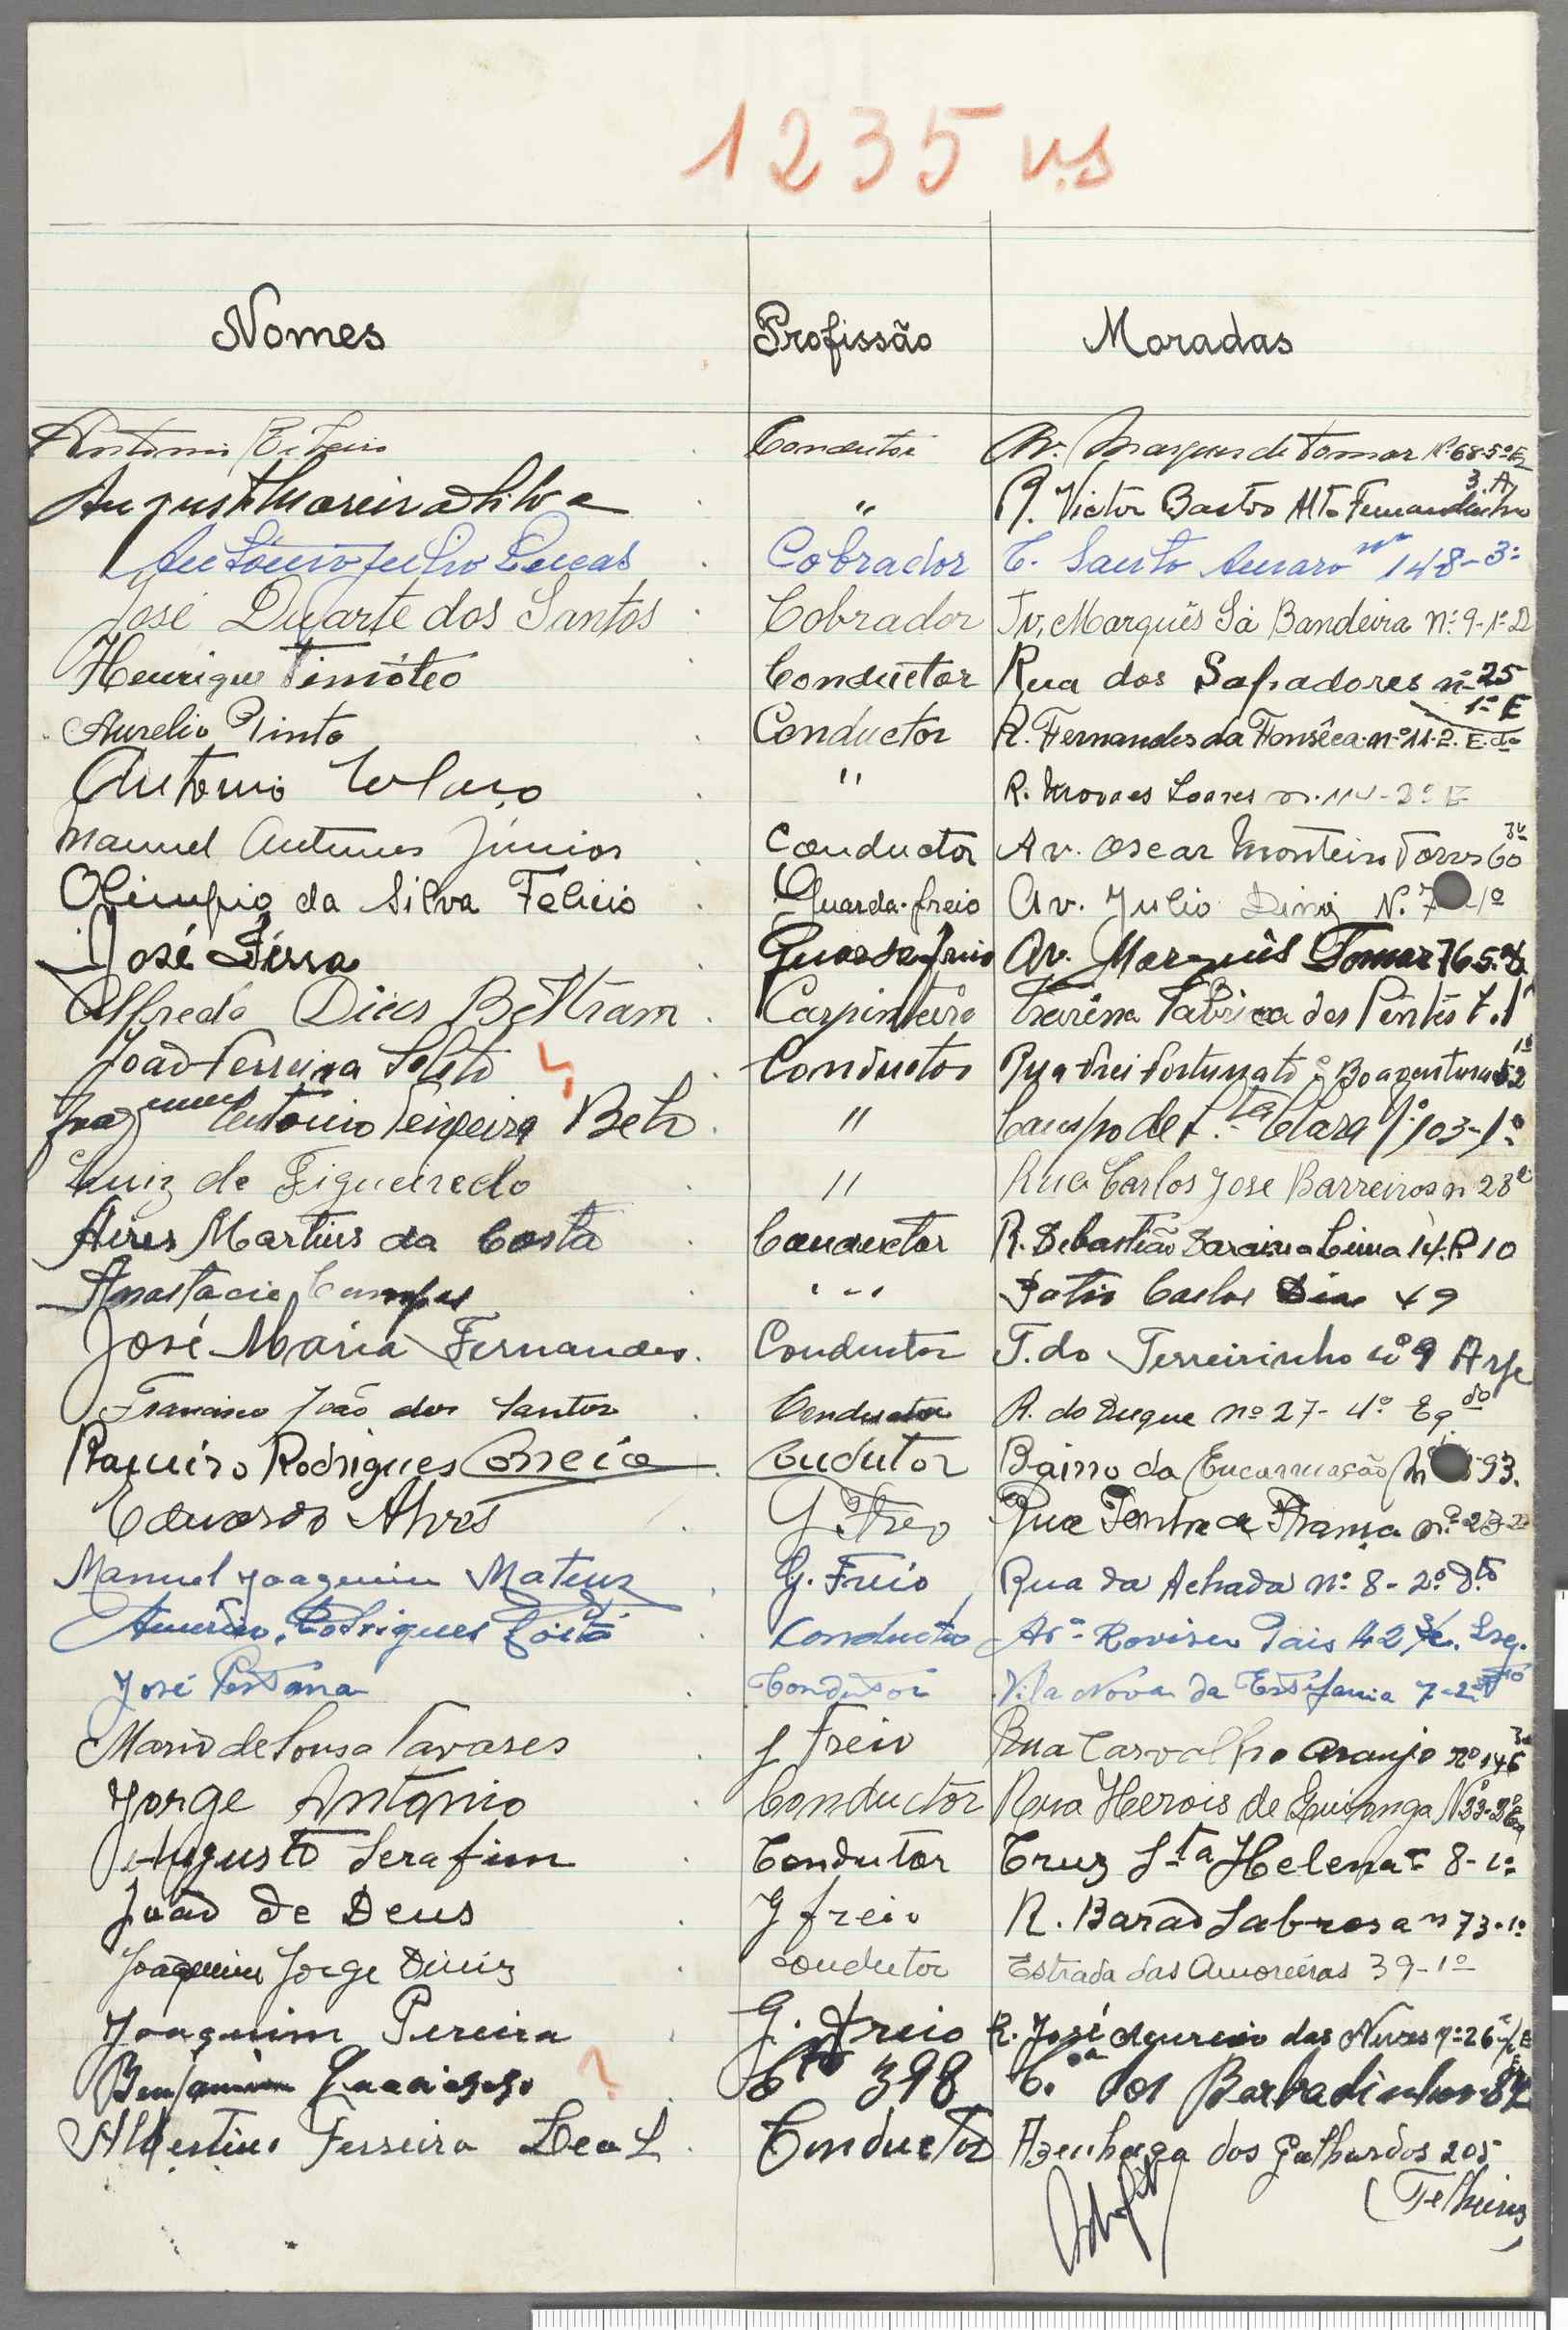 1235 v.s
Nomes Profissão Moradas
Antonio Ribeiro Condutor Av. Marques de Tomar Nº 68-5º E
Augusto Moreira da Silva " R. Victor Bastos Alto Fernandinho 3.A
António Julio Lucas Cobrador C. Santo Amaro nº 148-3º
José Duarte dos Santos Cobrador Tv. Marquês Sá Bandeira nº 9-1º D
Henrique Timóteo Conductor Rua dos Sapadores nº 25 1º E
Aurelio Pinto Conductor R. Fernandes da Fonsêca nº 11-2. E.do
Antonio Colaço " R. Moraes Soares n. 114-3º E
Manuel Antunes Júnior Conductor Av. Oscar Monteiro Torres 60 3º
Olimpio da Silva Felicio Guarda-freio Av. Julio Diniz N. 7 1º
José Sérra Guarda freio Av. Marquês Tomar 76 5º
Alfredo Dias Beltram Carpinteiro Fabrica dos Pentes
João Ferreira Conductor Rua Frei Fortunato S. Boaventura 52 1º
Antonio Teixeira " Campo de Sta Clara Nº 103-1º
Luiz de Figueiredo " Rua Carlos José Barreiros n 28
Aires Martins da Costa Conductor R. Sebastião Saraiva Lima 14. R 10
Anastacio Campos " Patio Carlos Dias 49
José Maria Fernandes. Conductor T. do Terreirinho nº 9
Francisco João dos Santos Conductor R. do Duque nº 27-4º Eqdo
Ramiro Rodrigues Correia Cudutor Bairro da Encarnação 93.
Eduardo Alves G Freo Rua Penha de França nº 23-2º
Manuel Joaquim Mateus G. Freio Rua da Achada nº 8-2º Dto
Americo Rodrigues Conductor Avª Rovisco Pais 42 Esq.
José Pestana Condutor Vila Nova da Estefania 7-2º
Mario de Sousa Tavares g freio Rua Carvalho Araujo nº 146 3º
Jorge António Conductor Rua Herois de Quionga Nº 33-3º Eq
Augusto Serafim Condutor Cruz Sta Helena 8-1º
João de Deus G freio R. Barão Sabrosa n 73-1º
Joaquim Jorge Diniz condutor Estrada das Amoreiras 39-1º
Joaquim Pereira G. Freio R. José Aurelio das Neves nº 26
Benjamim ? 398 C.ª dos Barbadinhos
Albertino Ferreira Leal Conductor Azenhaga dos Galhardos 205
(Telheiras)